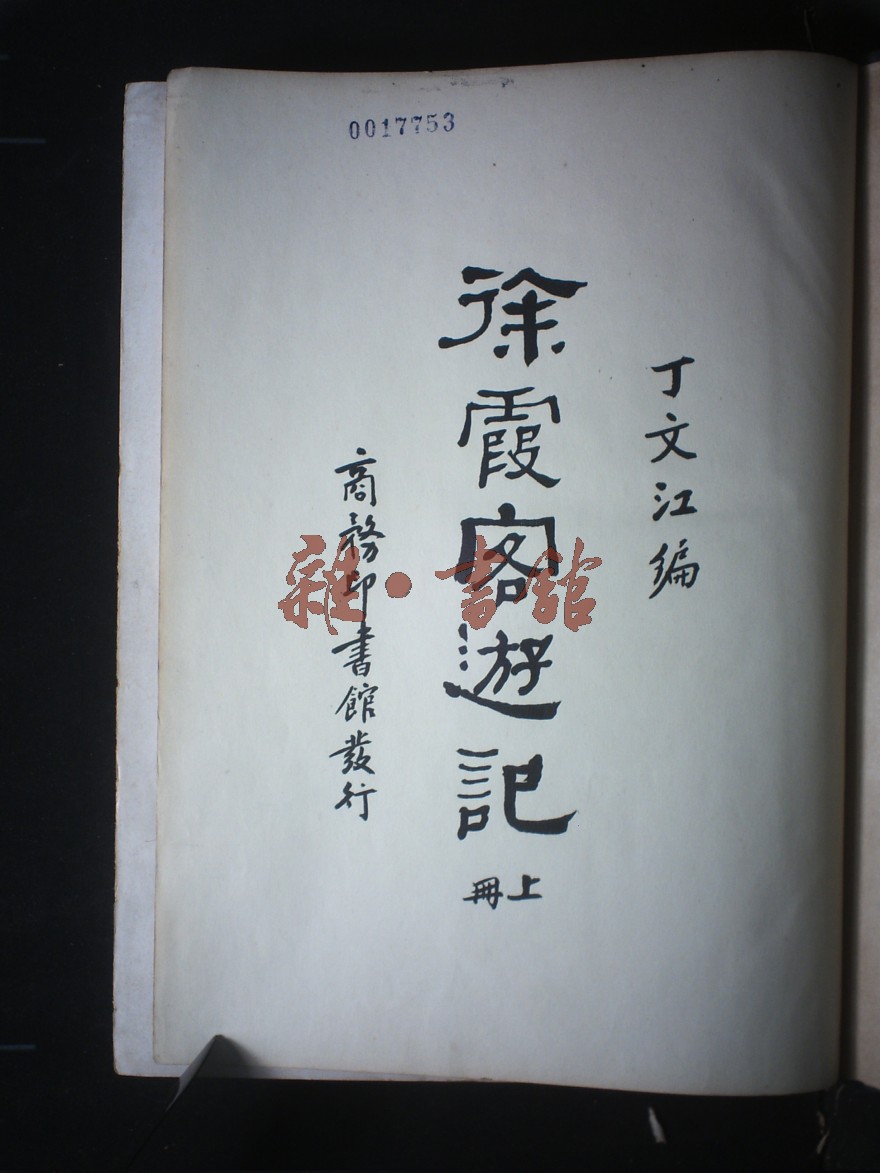 0017753
丁文江編
徐霞客遊記
上冊
商務印書館發行
雜·書館